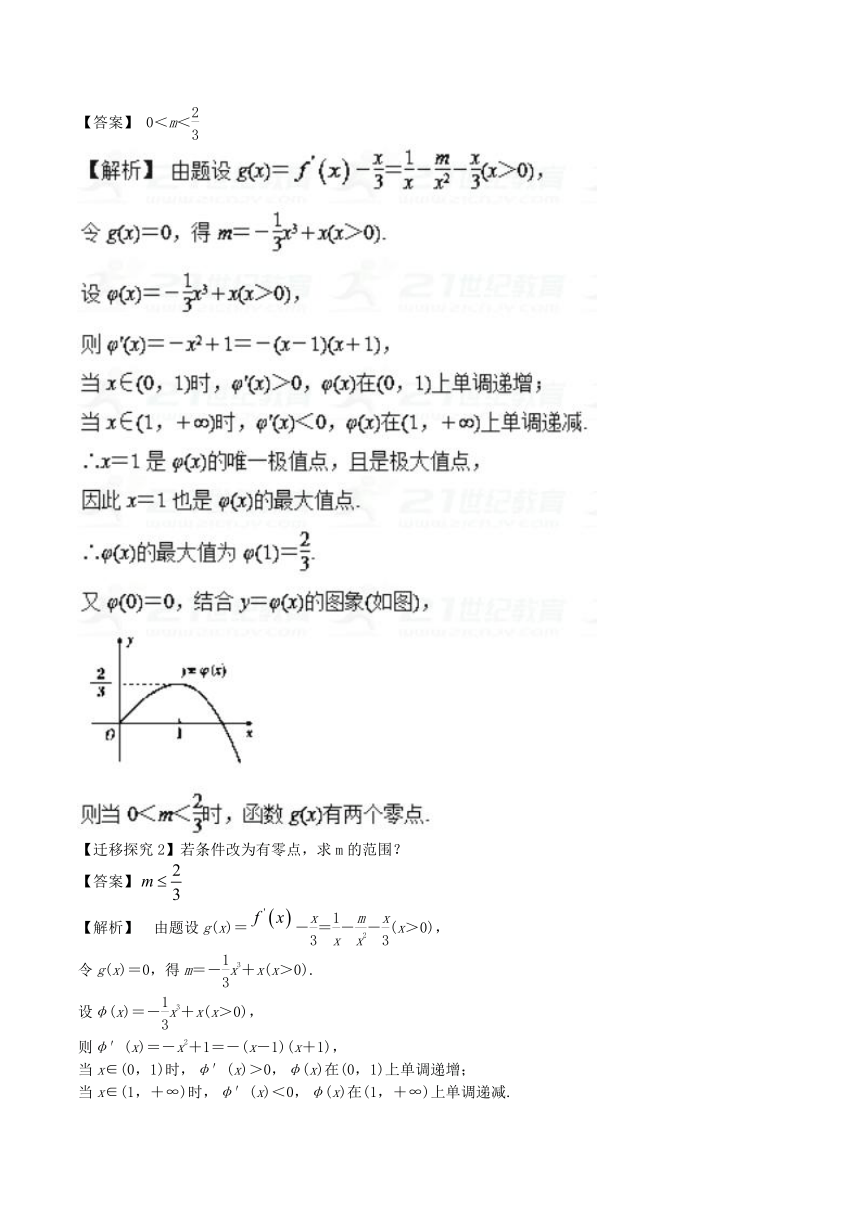 【答案】 0＜m＜2/3
【解析】 由题设 g(x)＝f′(x)－x/3＝1/x－m/x²－x/3(x>0)，
令 g(x)＝0，得 m＝－1/3x³＋x(x>0).
设 φ(x)＝－1/3x³＋x(x>0)，
则 φ′(x)＝－x²＋1＝－(x－1)(x＋1)，
当 x∈(0，1)时，φ′(x)>0，φ(x)在(0，1)上单调递增；
当 x∈(1，＋∞)时，φ′(x)＜0，φ(x)在(1，＋∞)上单调递减.
∴x＝1 是 φ(x)的唯一极值点，且是极大值点，
因此 x＝1 也是 φ(x)的最大值点.
∴φ(x)的最大值为 φ(1)＝2/3.
又 φ(0)＝0，结合 y＝φ(x)的图象(如图)，
y
y＝φ(x)
2/3
O 1 x
则当 0＜m＜2/3时，函数 g(x)有两个零点.
【迁移探究2】若条件改为有零点，求 m 的范围？
【答案】m ≤ 2/3
【解析】 由题设 g(x)＝f′(x)－x/3＝1/x－m/x²－x/3(x>0)，
令 g(x)＝0，得 m＝－1/3x³＋x(x>0).
设 φ(x)＝－1/3x³＋x(x>0)，
则 φ′(x)＝－x²＋1＝－(x－1)(x＋1)，
当 x∈(0，1)时，φ′(x)>0，φ(x)在(0，1)上单调递增；
当 x∈(1，＋∞)时，φ′(x)＜0，φ(x)在(1，＋∞)上单调递减.